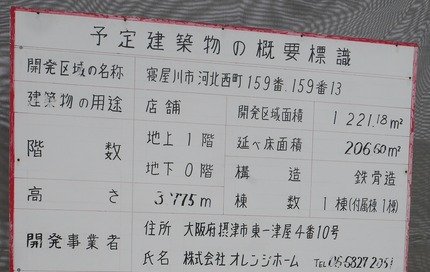 予定建築物の概要標識
開発区域の名称 寝屋川市河北西町159番.159番13
建築物の用途 店舗 開発区域面積 1221.18m²
階数 地上1階 延べ床面積 206.60m²
地下0階 構造 鉄骨造
高さ 3.775m 棟数 1棟(付属棟1棟)
開発事業者 住所 大阪府摂津市東一津屋4番10号
氏名 株式会社オレンジホーム TEL